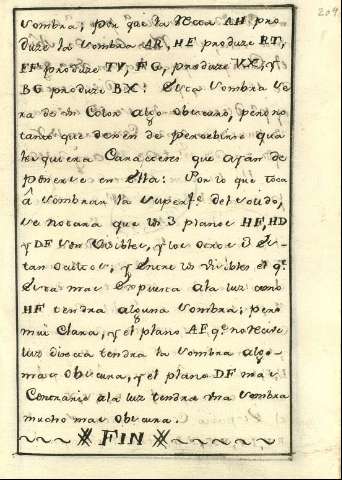 209
Sombra; por qᵉ la Recta AH pro-
duze la Sombra AR, HE produze RT,
FF produze TV, FG, produze VX; y
BG produze BX: Esta Sombra se
ra de un Color algo obscuro, pero no
tanto que dexen de percebirse qua
lesquiera Caracteres que ayan de
ponerse en Ella: Por lo que toca
â sombrear la superfᵉ del solido,
se notara que los 3 planos HF, HD
y DF son Visibles, y los otros 3 Es-
tan ocultos; y Entre los visibles el qᵉ
Esta mas Expuesto ala luz como
HF tendra alguna Sombra; pero
mui Clara, y el plano AF qᵉ no Reciᵉ
luz directa tendra la Sombra algo-
mas obscura, y el plano DF mas
Contrario ala luz tendra una Sombra
mucho mas obscura.
FIN